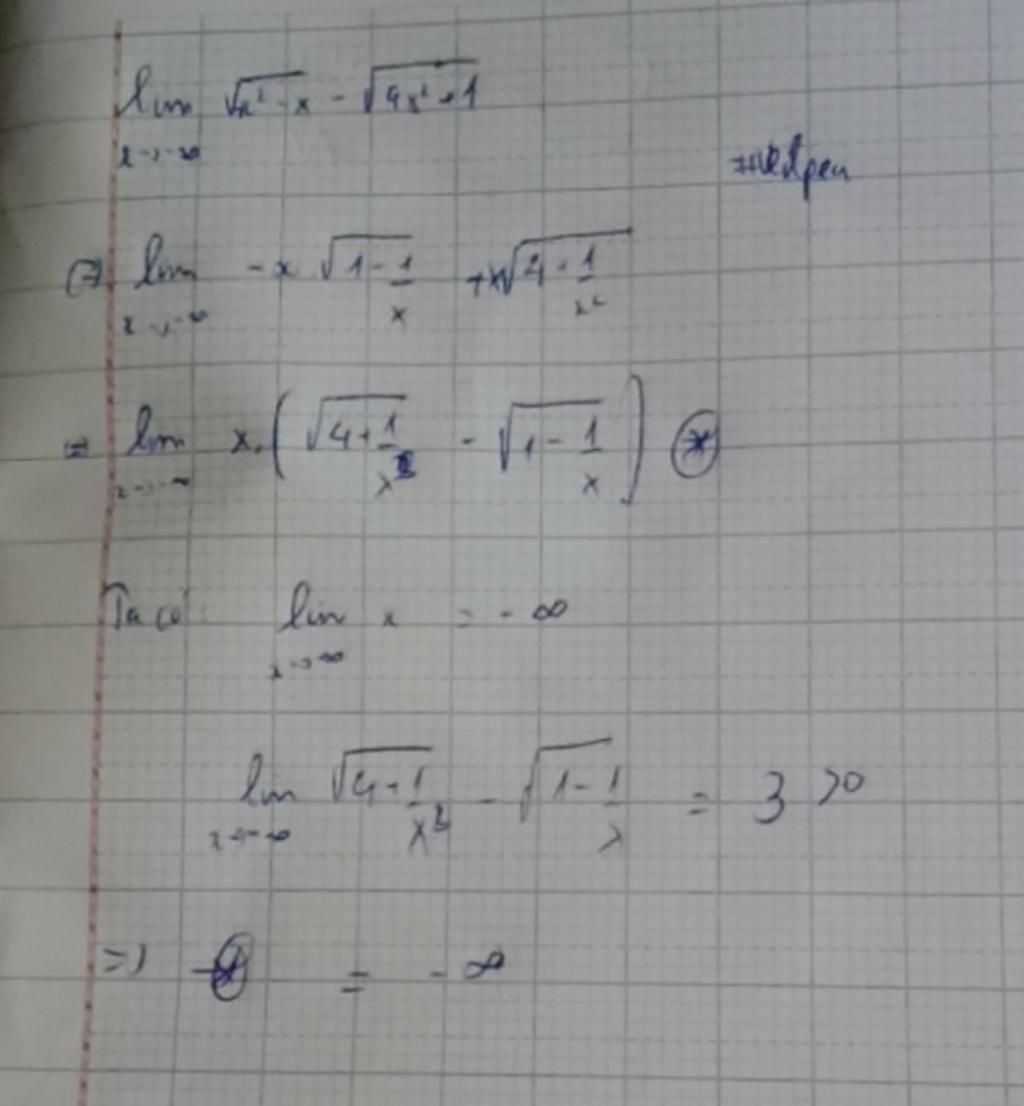 lim √(x² - x) - √(4x² + 1)
x → -∞
#Helpen
(=) lim -x √(1 - 1/x) + x√(4 + 1/x²)
x → -∞
= lim x. ( √(4 + 1/x²) - √(1 - 1/x) ) (*)
x → -∞
Ta có: lim x = -∞
x → -∞
lim √(4 + 1/x²) - √(1 - 1/x) = 3 > 0
x → -∞
=> (*) = -∞